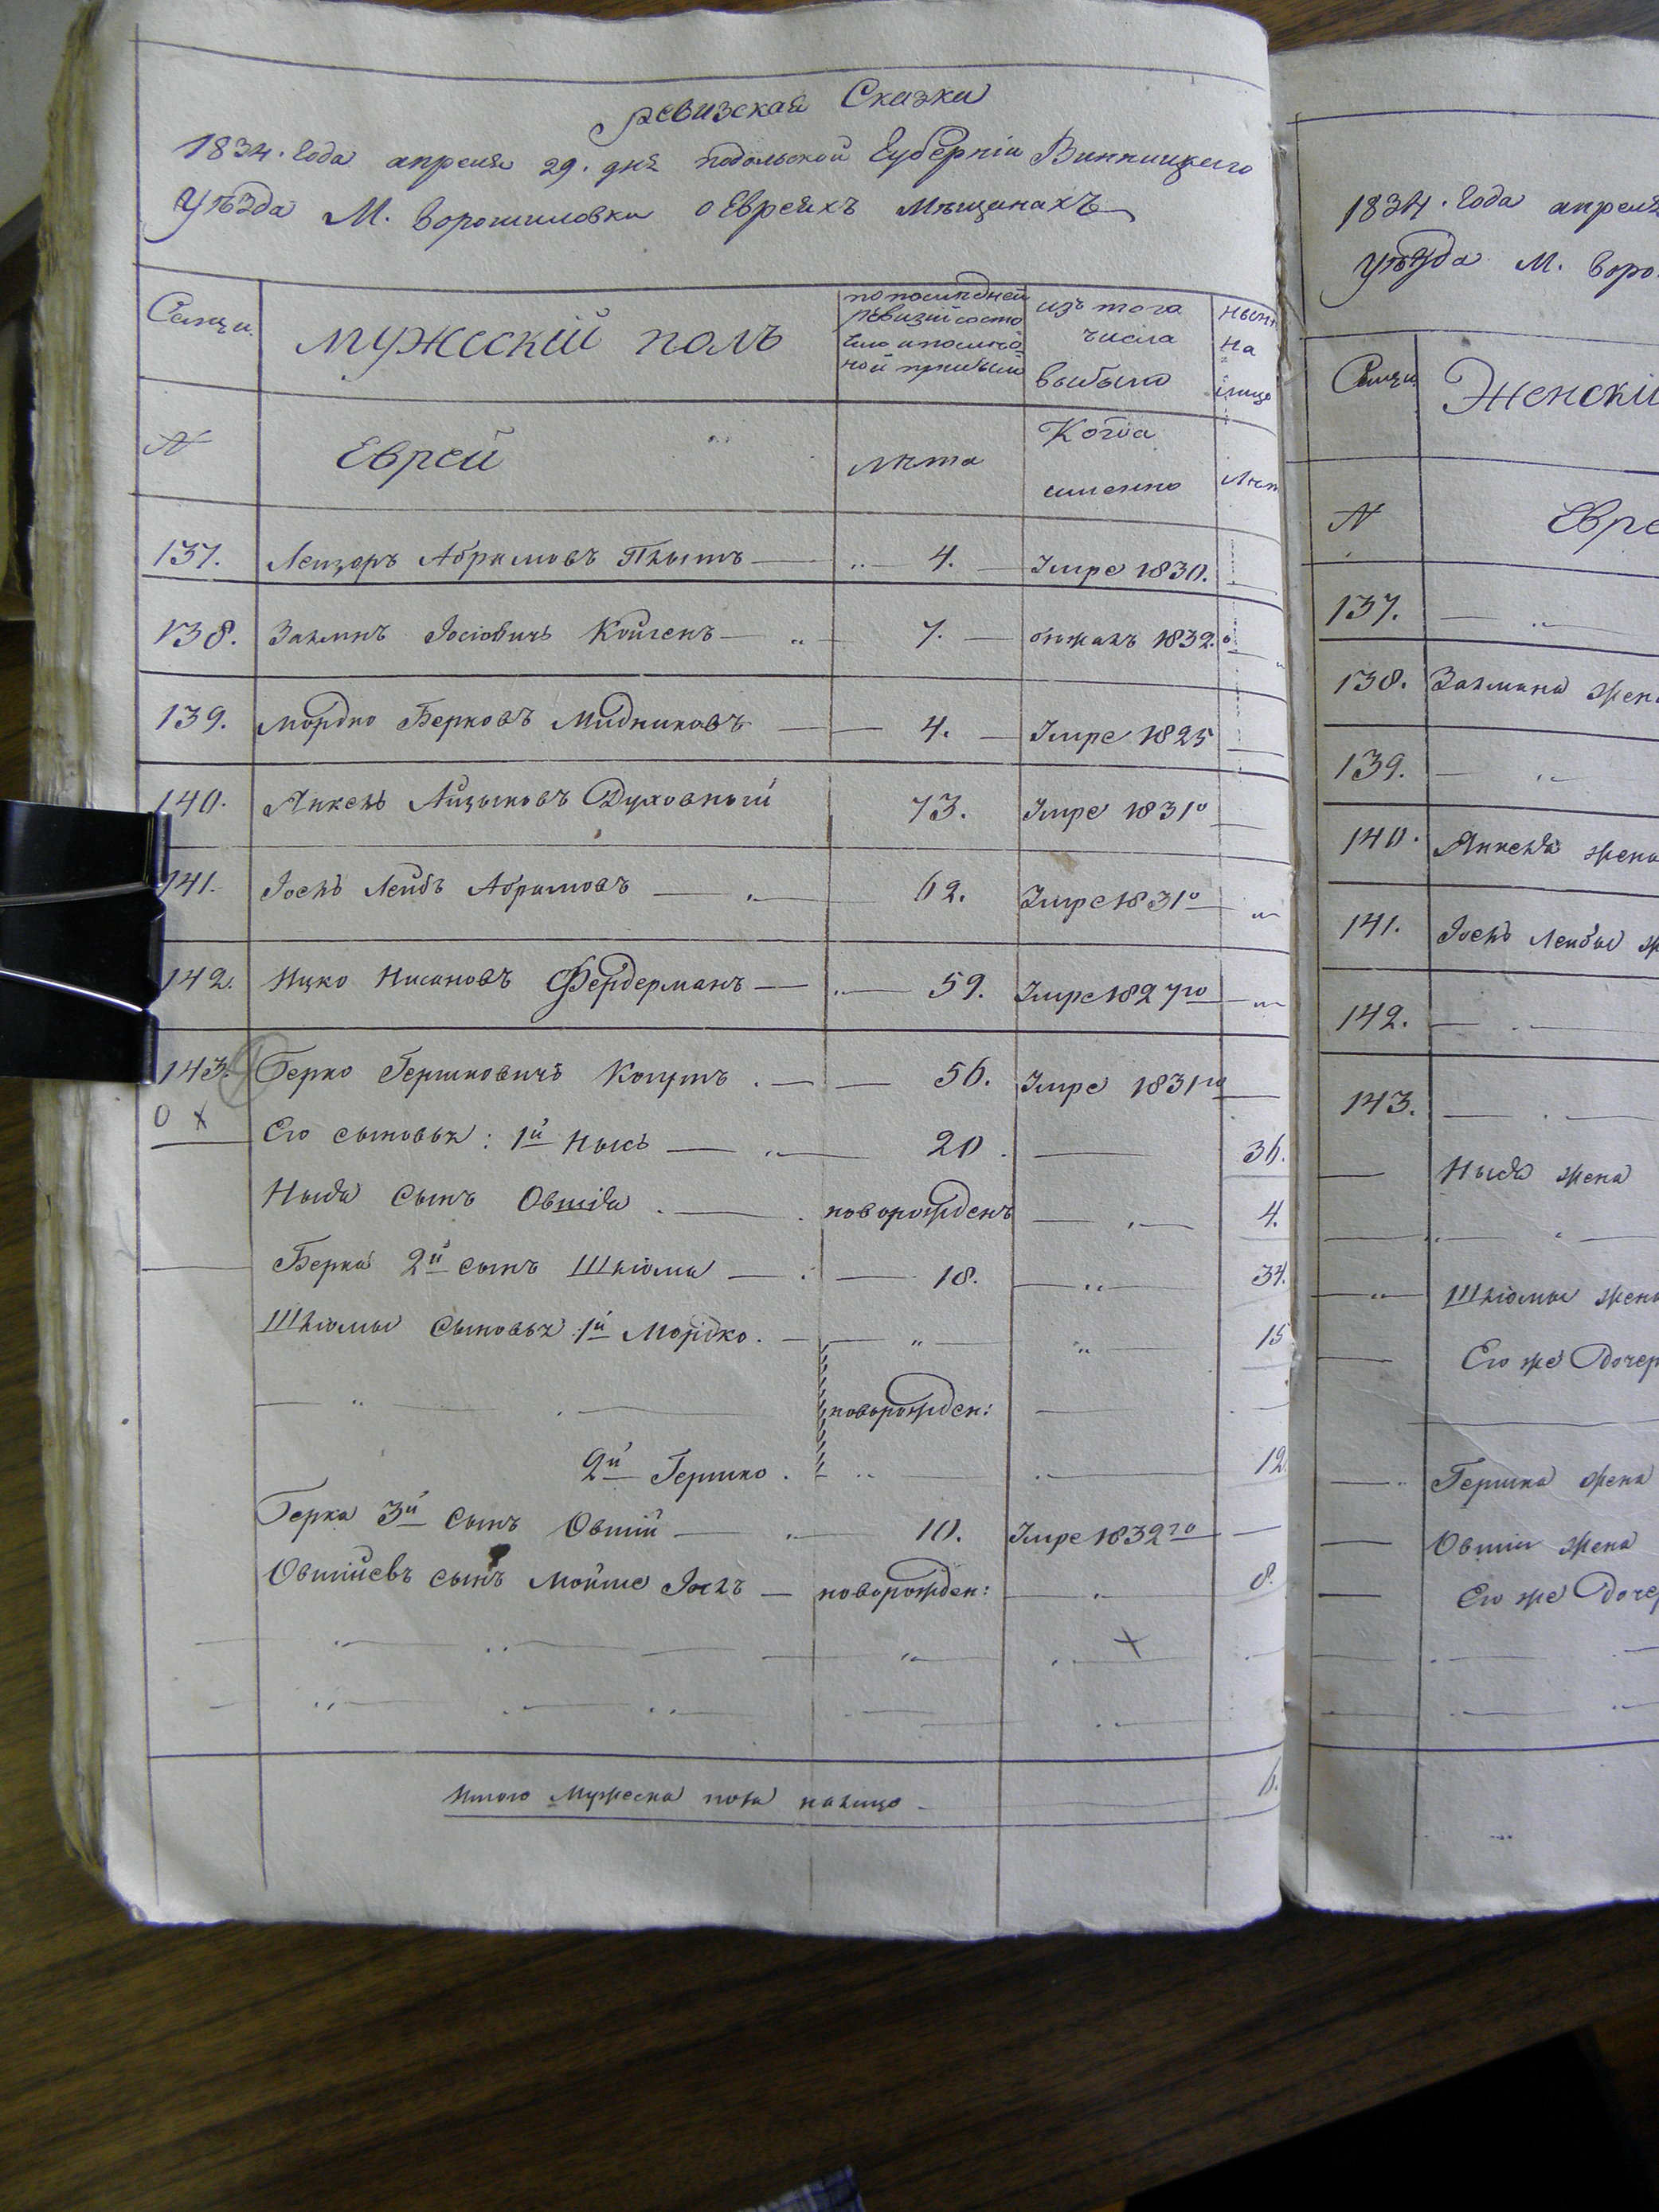 Ревизская Сказка
1834. Года апреля 29. дня Подольской Губерніи Винницкого
Уѣзда М. Ворошиловки о Евреяхъ Мѣщанахъ
Семьи
мужескій полъ
по последней ревизіи состо
изъ того числа выбыло
на лицо
№
Еврей
лѣта
Когда именно
Лѣт
137. Лейзоръ Абрамовъ 4. Умре 1830.
138. Залманъ Іосіовичъ Койгенъ 7. бѣжалъ 1832.
139. Мордко Берковъ Мидниковъ 4. Умре 1825
140. Янкель Айзыковъ Духовный 73. Умре 1831о
141. Іось Лейбъ Абрамовъ 62. Умре 1831о
142. Ицко Нисановъ Фердерманъ 59. Умре 1827го
143. Берко Гершковичъ 56. Умре 1831го
0 х
Его сыновья: 1й Нысь 20. 36.
Ныся сынъ Овшія новорожденъ 4.
Берка 2й сынъ Шліома 18. 34.
Шліомы Сыновья: 1й Мордко. 15
новорожден:
2й Гершко. 12.
Берка 3й сынъ Овший 10. Умре 1832го
Овшіевъ сынъ Мойше новорожден: 8.
х
Итого Мужеска пола налицо 6.
1834. Года апреля
Уѣзда М. Воро
Семьи
Женскі
№
Евре
137.
138. Залмана жена
139.
140. Янкеля жена
141. Іось Лейбы ж
142.
143.
Ныся жена
Шліомы жена
Его же Дочер
Гершка жена
Овшия жена
Его же Дочер